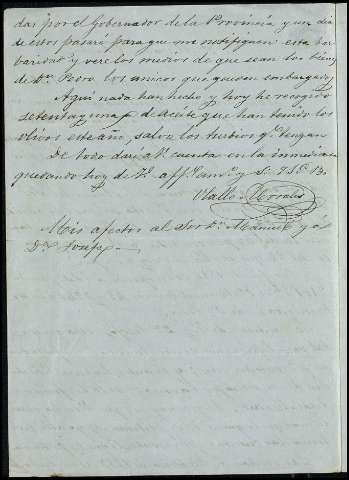 das por el Gobernador de la Provincia y un dia
de estos pasaré para que me notifiquen esta bar
baridad y vere los medios de que sean los bienes
de Dn. Pedro los unicos que queden embargados
Aqui nada han hecho y hoy he recogido
setenta y una @ de aceite que han tenido los
olivos este año, salvo los turbios qe. tengan
De todo daré á V. cuenta en la inmediata
quedando hoy de V. affmo. amo. y S. S. Q. B.
Morales
Mis afectos al Sor Dn. Manuel y á
Da. Josefa.